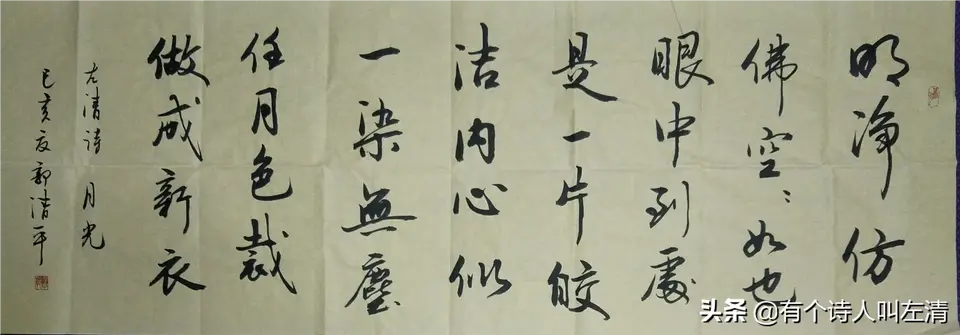 明净仿
佛空々如也
眼中到處
是一片皎
洁内心似
一染無塵
任月色裁
做成新衣
左清诗 月光
己亥夏郭清平
头条 @有个诗人叫左清